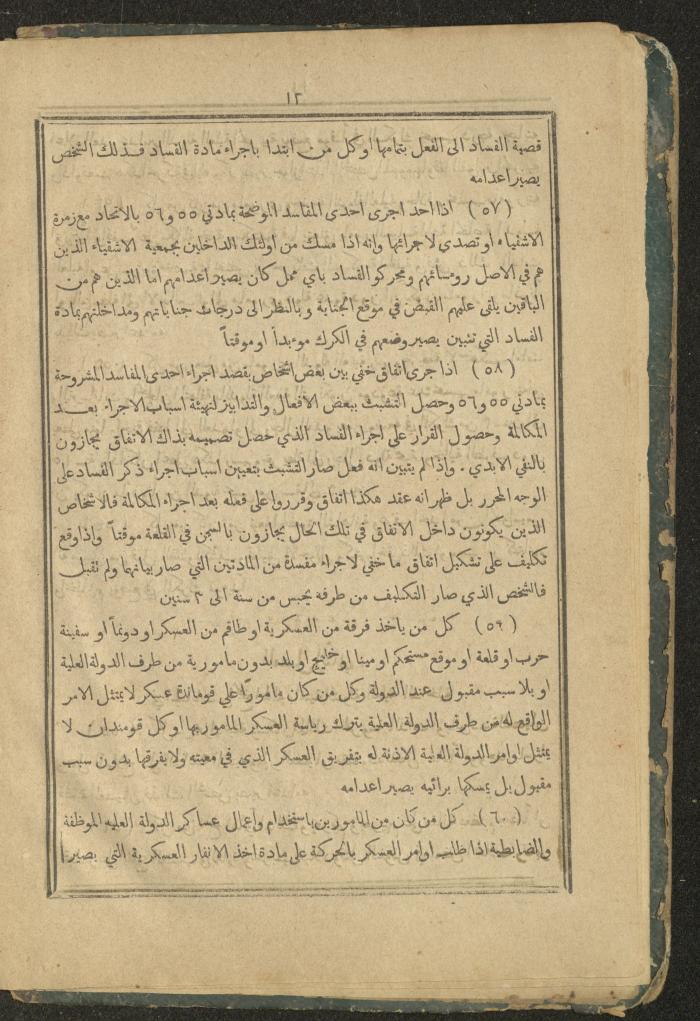 ١٢
قصية الفساد الى الفعل بتمامها او كل من ابتدا باجراء مادة الفساد فذلك الشخص
يصير اعدامه
(٥٧) اذا احد اجرى احدى المفاسد الموضحة بمادتي ٥٥ و٥٦ بالاتحاد مع زمرة
الاشقياء او تصدى لاجرائها وانه اذا مسك من اولئك الداخلين بجمعية الاشقياء الذين
هم في الاصل رومسائهم ومحركو الفساد باي محل كان يصير اعدامهم اما الذين هم من
الباقين يلقى عليهم القبض في موقع الجناية وبالنظر الى درجات جناياتهم ومداخلتهم بمادة
الفساد التي تتبين يصير وضعهم في الكرك موءبدأ او موقتاً
(٥٨) اذا جرى اتفاق خفي بين بعض اشخاص بقصد اجراء احدى المفاسد المشروحة
بمادتي ٥٥ و٥٦ وحصل التشبث ببعض الافعال والتدابيز لتهيئة اسباب الاجراء بعد
المكالمة وحصول القرار على اجراء الفساد الذي حصل تصميمه بذاك الاتفاق يجازون
بالنفي الابدي . واذا لم يتبين انه فعل صار التشبث بتعيين اسباب اجراء ذكر الفساد على
الوجه المحرر بل ظهر انه عقد هكذا اتفاق وقرروا على فعله بعد اجراء المكالمة فالاشخاص
الذين يكونون داخل الاتفاق في تلك الحال يجازون بالسجن في القلعة موقتاً واذا وقع
تكليف على تشكيل اتفاق ما خفي لاجراء مفسدة من المادتين التي صار بيانهما ولم تقبل
فالشخص الذي صار التكليف من طرفه يحبس من سنة الى ٣ سنين
(٥٩) كل من ياخذ فرقة من العسكرية او طاقم من العسكر او دونماً او سفينة
حرب او قلعة او موقع مستحكم او مينا او خليج او بلد بدون مامورية من طرف الدولة العلية
او بلا سبب مقبول عند الدولة وكل من كان مامورًا على قوماندة عسكر لا يمتثل الامر
الواقع له من طرف الدولة العلية بترك رياسة العسكر المامور بها او كل قومندان لا
يمتثل اوامر الدولة العلية الاذنة له بتفريق العسكر الذي في معيته ولا يفرقها بدون سبب
مقبول بل يمسكها برائيه يصير اعدامه
(٦٠) كل من كان من المامورين باستخدام واعمال عساكر الدولة العليه الموظفة
والضابطية اذا طلب اوامر العسكر بالحركة على مادة اخذ الانفار العسكرية التي يصير